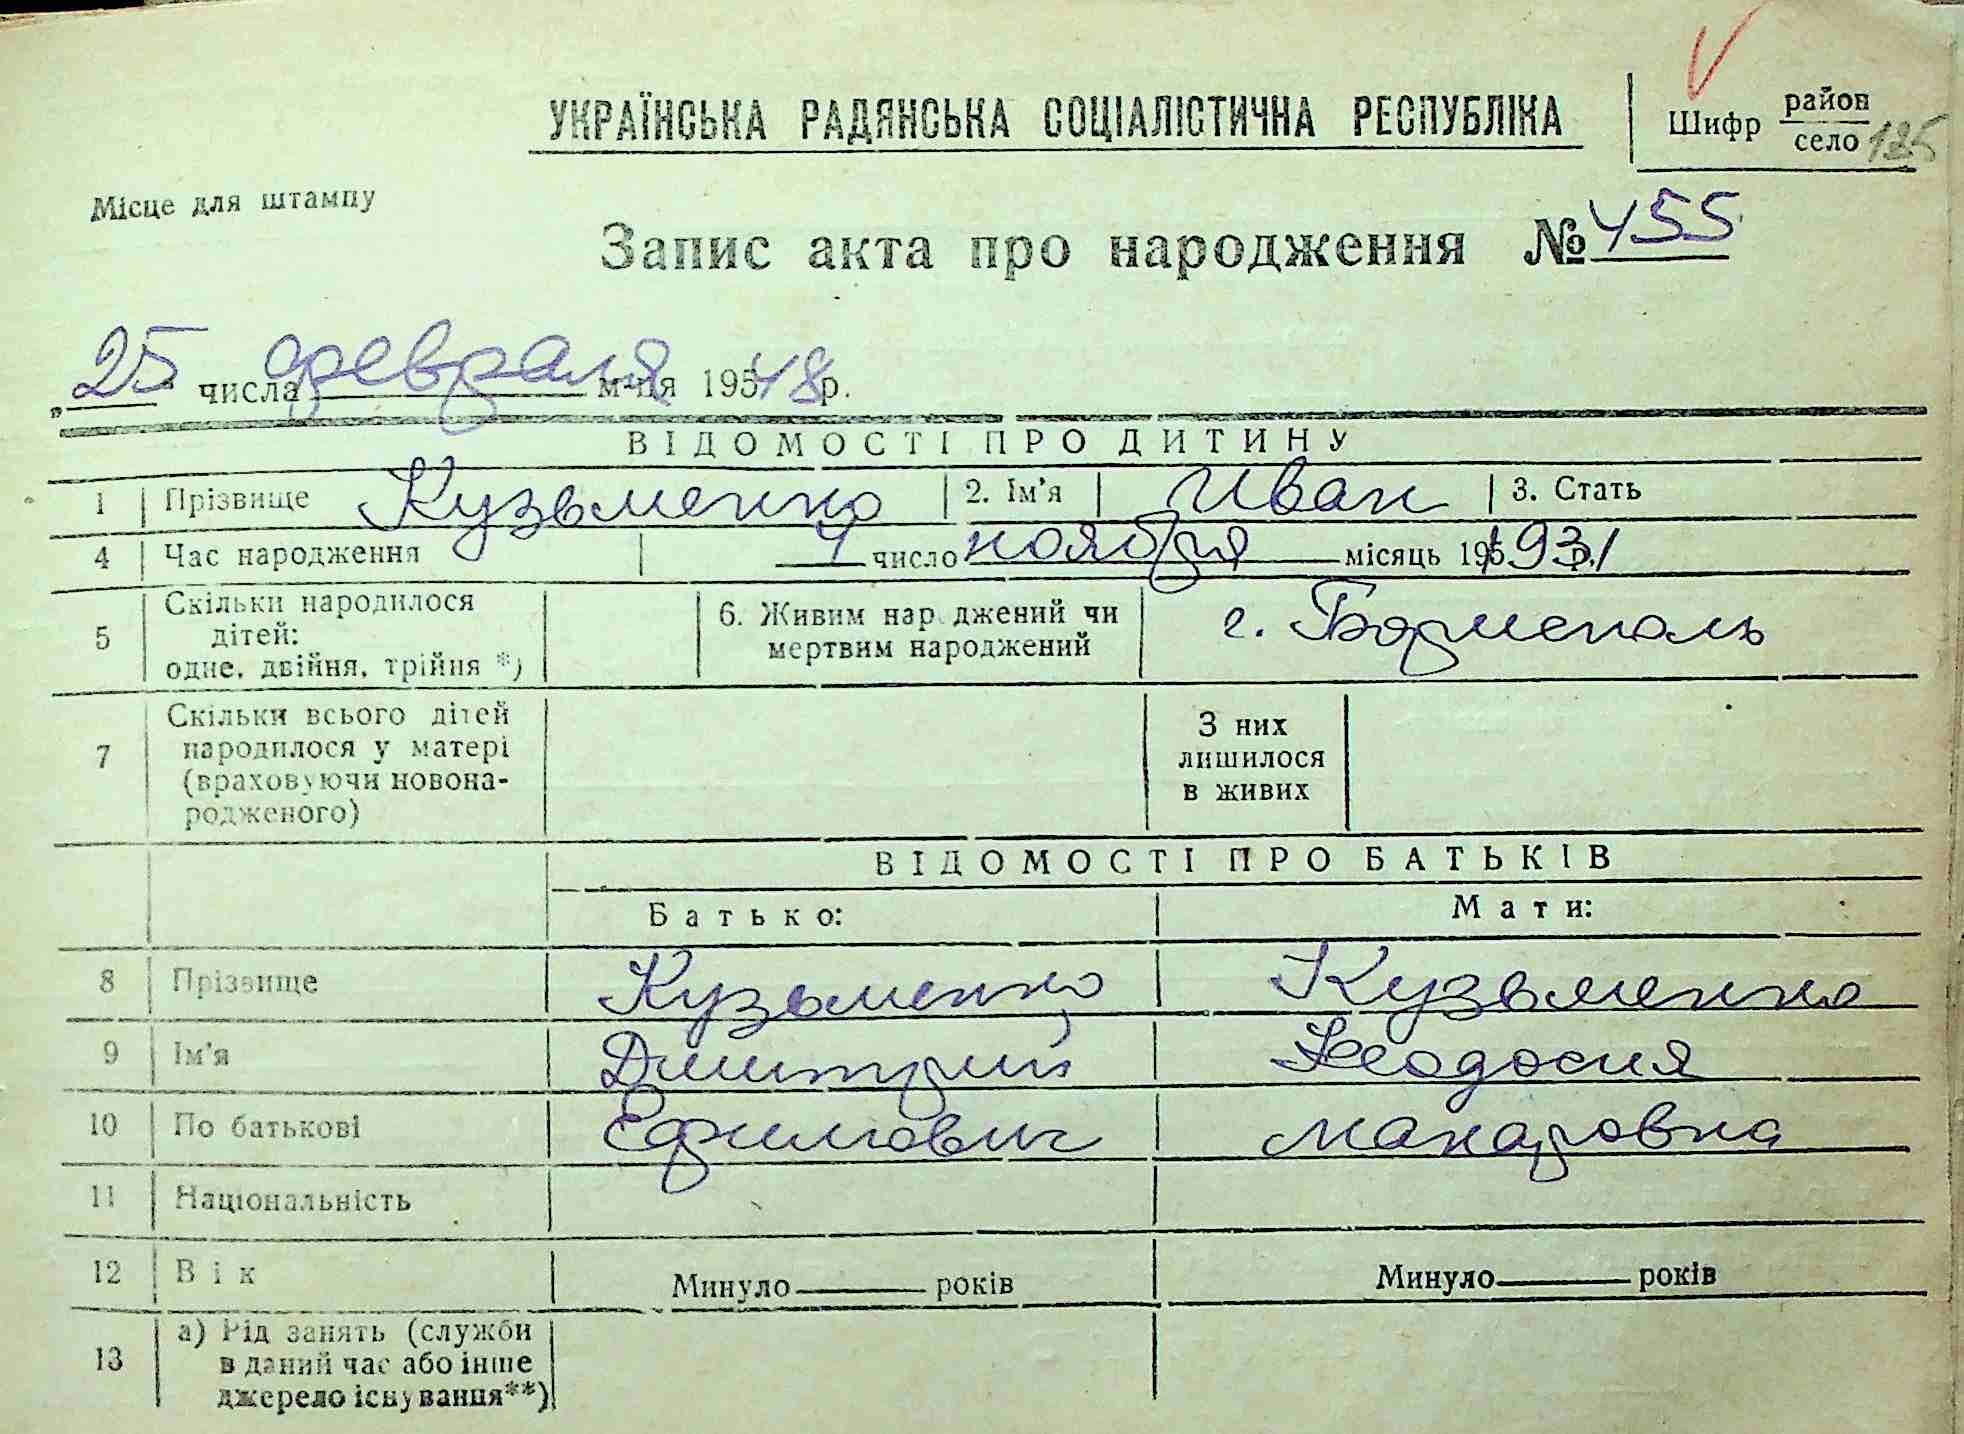 УКРАЇНСЬКА РАДЯНСЬКА СОЦІАЛІСТИЧНА РЕСПУБЛІКА
Шифр район
село 125
Місце для штампу
Запис акта про народження № 455
„25" числа февраля м-ця 195 48 р.
ВІДОМОСТІ ПРО ДИТИНУ
1 Прізвище Кузьменко 2. Ім'я Иван 3. Стать
4 Час народження 4 число ноября місяць 195 1931 р.
5 Скільки народилося дітей: одне, двійня, трійня *) 6. Живим народжений чи мертвим народжений г. Борисполь
7 Скільки всього дітей народилося у матері (враховуючи новонародженого) З них лишилося в живих
ВІДОМОСТІ ПРО БАТЬКІВ
Батько: Мати:
8 Прізвище Кузьменко Кузьменко
9 Ім'я Дмитрий Феодосия
10 По батькові Ефимович Макаровна
11 Національність
12 Вік Минуло ____ років Минуло ____ років
13 а) Рід занять (служби в даний час або інше джерело існування**)